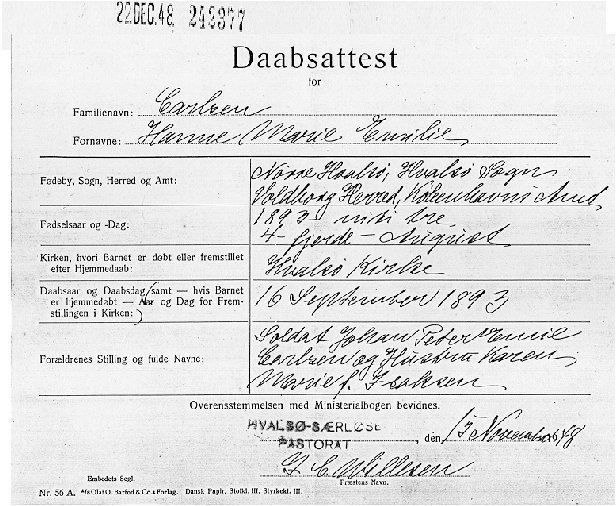 22 DEC. 48. 243377
Daabsattest
for
Familienavn: Carlsen
Fornavne: Hanne Marie Emilie
Fødeby, Sogn, Herred og Amt:
Nørre Hvalsø, Hvalsø Sogn
Voldborg Herred, Københavns Amt,
Fødselsaar og -Dag:
1893 - nitti tre
4 - fjerde - August
Kirken, hvori Barnet er døbt eller fremstillet
efter Hjemmedaab:
Hvalsø Kirke
Daabsaar og Daabsdag (samt — hvis Barnet
er hjemmedøbt — Aar og Dag for Frem-
stillingen i Kirken:)
16 September 1893
Forældrenes Stilling og fulde Navne:
Soldat Johan Peter Emil
Carlsen og Hustru Karen
Marie f. Isaksen
Overensstemmelsen med Ministerialbogen bevidnes.
HVALSØ-SÆRLØSE
PASTORAT
, den 15 November 1948
Willesen
Embedets Segl.
Præstens Navn.
Nr. 56 A.